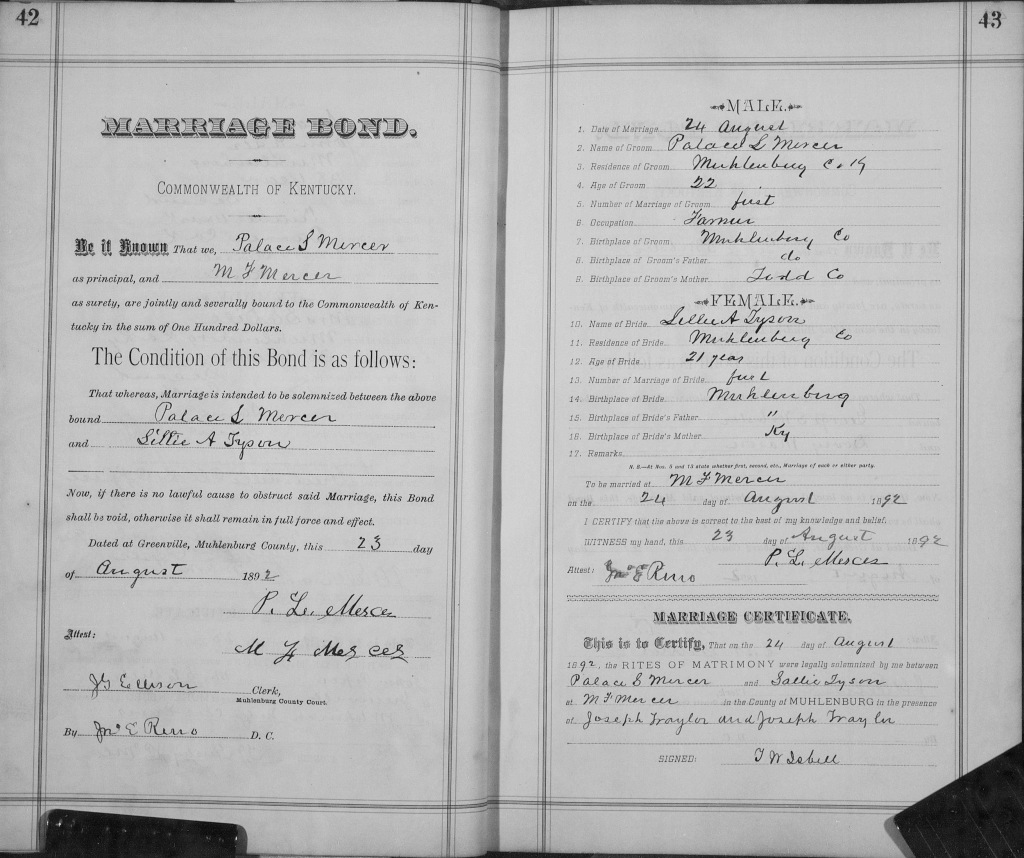 42
MARRIAGE BOND.
COMMONWEALTH OF KENTUCKY.
Be it Known That we, Palace S Mercer
as principal, and M F Mercer
as surety, are jointly and severally bound to the Commonwealth of Ken-
tucky in the sum of One Hundred Dollars.
The Condition of this Bond is as follows:
That whereas, Marriage is intended to be solemnized between the above
bound Palace S Mercer
and Sillie A Tyson
Now, if there is no lawful cause to obstruct said Marriage, this Bond
shall be void, otherwise it shall remain in full force and effect.
Dated at Greenville, Muhlenburg County, this 23 day
of August 1892
P. L. Mercer
Attest:
M F Mercer
Clerk,
Muhlenburg County Court.
By Jno E Reno D. C.
43
MALE.
1. Date of Marriage 24 August
2. Name of Groom Palace S Mercer
3. Residence of Groom Muhlenburg Co Ky
4. Age of Groom 22
5. Number of Marriage of Groom first
6. Occupation Farmer
7. Birthplace of Groom Muhlenburg Co
8. Birthplace of Groom's Father do
9. Birthplace of Groom's Mother Todd Co
FEMALE.
10. Name of Bride Sillie A Tyson
11. Residence of Bride Muhlenburg Co
12. Age of Bride 21 year
13. Number of Marriage of Bride first
14. Birthplace of Bride Muhlenburg
15. Birthplace of Bride's Father "
16. Birthplace of Bride's Mother Ky
17. Remarks
N. B.—At Nos. 5 and 13 state whether first, second, etc., Marriage of each or either party.
To be married at M F Mercer
on the 24 day of August 1892
I CERTIFY that the above is correct to the best of my knowledge and belief.
WITNESS my hand, this 23 day of August 1892
P. L. Mercer
Attest: Jno E Reno
MARRIAGE CERTIFICATE.
This is to Certify, That on the 24 day of August
1892, the RITES OF MATRIMONY were legally solemnized by me between
Palace S Mercer and Sallie Tyson
at M F Mercer in the County of MUHLENBURG in the presence
of Joseph Traylor and Joseph Traylor
SIGNED: T W Isbell